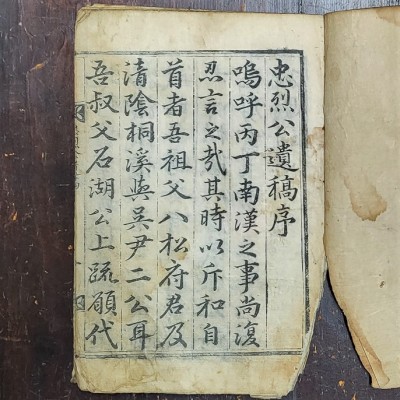 忠烈公遺稿序
嗚呼丙丁南漢之事尚復
忍言之㢤其時以斥和自
首者吾祖父八松府君及
清陰桐溪與吳尹二公耳
吾叔父石湖公上疏願代